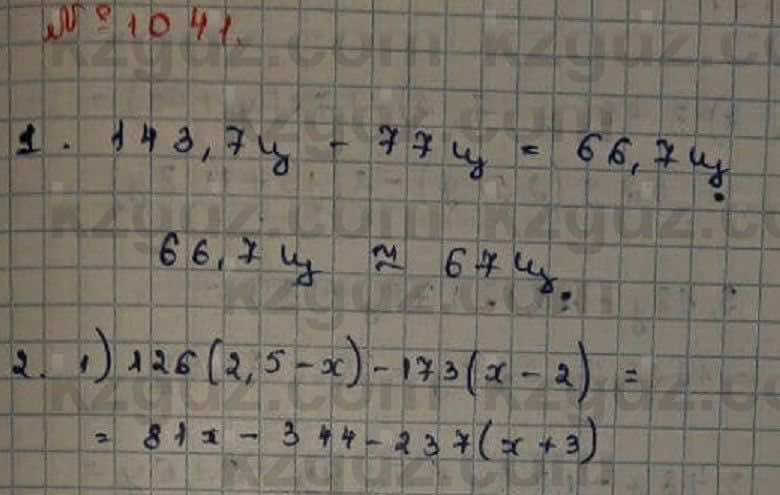 № 1041.
1. 143,7ц - 77ц = 66,7ц.
66,7ц ≈ 67ц.
2. 1) 126(2,5-x)-173(x-2) =
= 81x - 344-237(x+3)